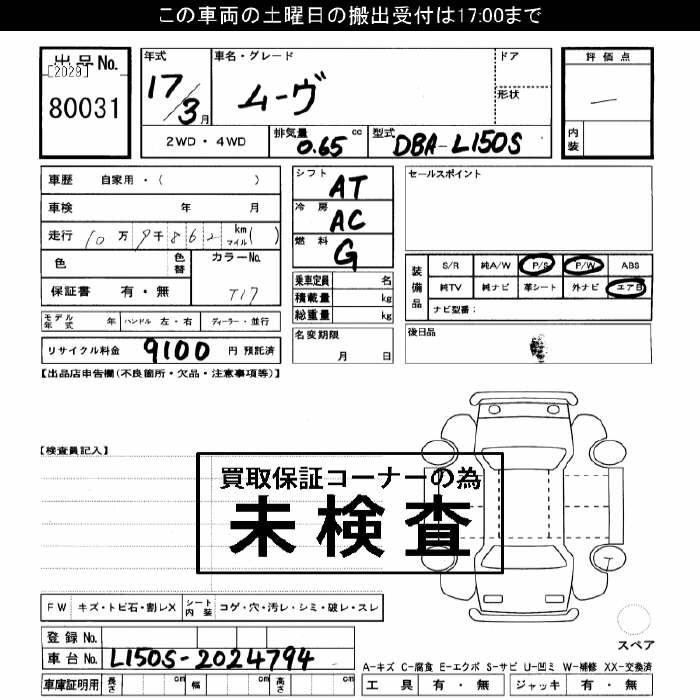 この車両の土曜日の搬出受付は17:00まで
出品No. [2029] 80031
年式 17/3月 車名・グレード ムーヴ ドア 形状
2WD・4WD 排気量 0.65 cc 型式 DBA-L150S
評価点 —
内装
車歴 自家用・( )
車検 年 月
走行 10万9千862 km マイル( )
色 色替 カラーNo.
保証書 有・無 T17
モデル年式 年 ハンドル 左・右 ディーラー・並行
リサイクル料金 9100 円 預託済
シフト AT
冷房 AC
燃料 G
乗車定員 名
積載量 kg
総重量 kg
名変期限 月 日
セールスポイント
装備品 S/R 純A/W P/S P/W ABS
純TV 純ナビ 革シート 外ナビ エアB
ナビ型番:
後日品
【出品店申告欄(不良箇所・欠品・注意事項等)】
【検査員記入】
買取保証コーナーの為
未検査
FW キズ・トビ石・割レX シート内装 コゲ・穴・汚レ・シミ・破レ・スレ
登録No.
車台No. L150S-2024794
車庫証明用 長さ cm 幅 cm 高さ cm
スペア
A-キズ C-腐食 E-エクボ S-サビ U-凹ミ W-補修 XX-交換済
工具 有・無 ジャッキ 有・無